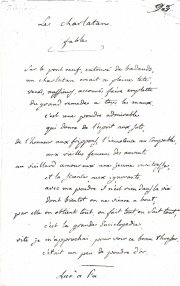 Le charlatan
fable
Sur le pont neuf, entouré de badauds,
un charlatan criait à pleine tête:
venez, messieurs, accourez faire emplette
du grand remède à tous les maux:
c'est une poudre admirable
qui donne de l'esprit aux sots,
de l'honneur aux fripons, l'innocence au coupable,
aux vieilles femmes des amants,
au vieillard amoureux une jeune maîtresse
et la science aux ignorants
avec ma poudre il n'est rien dans la vie
dont bientôt on ne vienne à bout,
par elle on obtient tout, on fait tout on sait tout,
c'est la grande encyclopédie.
vite je m'approchai pour voir ce beau trésor,
c'était un peu de poudre d'or.